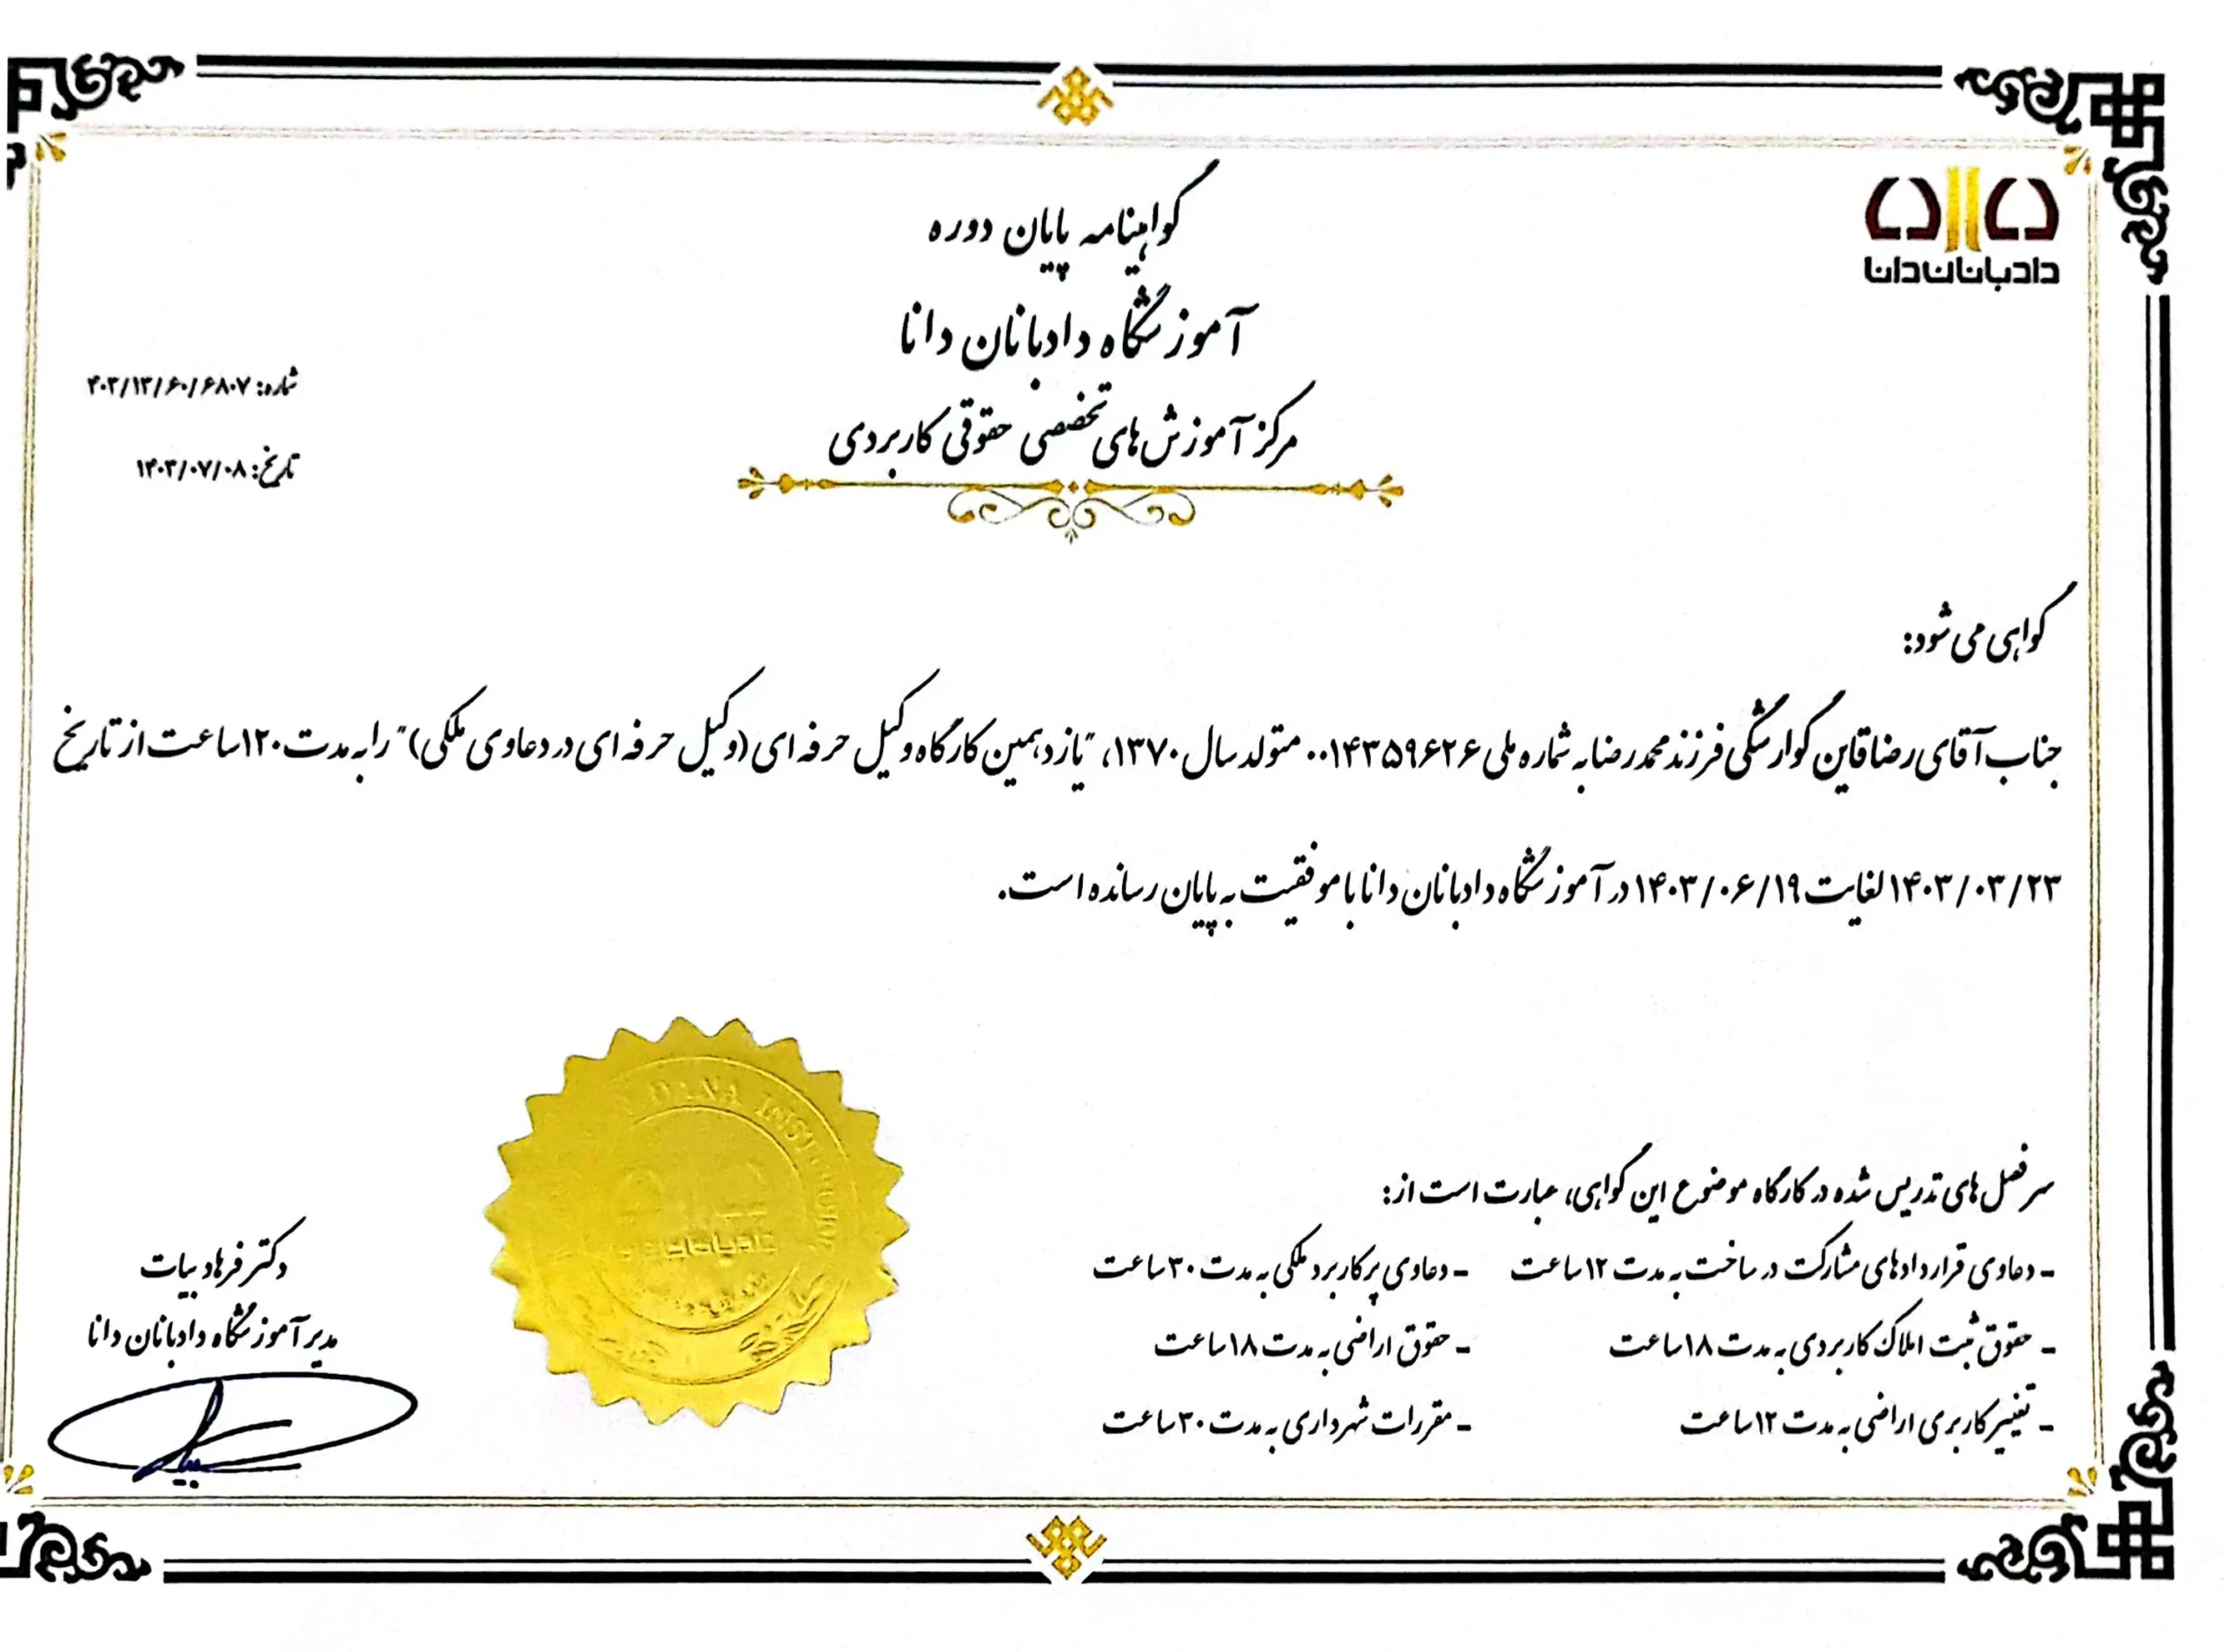 دادبانان دانا
گواهینامه پایان دوره
آموزشگاه دادبانان دانا
مرکز آموزش‌های تخصصی حقوقی کاربردی
شماره: ۴۰۳/۱۳/۶۰/۶۸۰۷
تاریخ: ۱۴۰۳/۰۷/۰۸
گواهی می شود:
جناب آقای رضا قاین گوارشکی فرزند محمدرضا به شماره ملی ۰۰۱۴۳۵۹۶۲۶ متولد سال ۱۳۷۰، "یازدهمین کارگاه وکیل حرفه ای (وکیل حرفه ای در دعاوی ملکی)" را به مدت ۱۲۰ ساعت از تاریخ
۱۴۰۳/۰۳/۲۳ لغایت ۱۴۰۳/۰۶/۱۹ در آموزشگاه دادبانان دانا با موفقیت به پایان رسانده است.
سرفصل های تدریس شده در کارگاه موضوع این گواهی، عبارت است از:
- دعاوی قراردادهای مشارکت در ساخت به مدت ۱۲ ساعت - دعاوی پرکاربرد ملکی به مدت ۳۰ ساعت
- حقوق ثبت املاک کاربردی به مدت ۱۸ ساعت - حقوق اراضی به مدت ۱۸ ساعت
- تغییر کاربری اراضی به مدت ۱۲ ساعت - مقررات شهرداری به مدت ۳۰ ساعت
دکتر فرهاد بیات
مدیر آموزشگاه دادبانان دانا
DANA